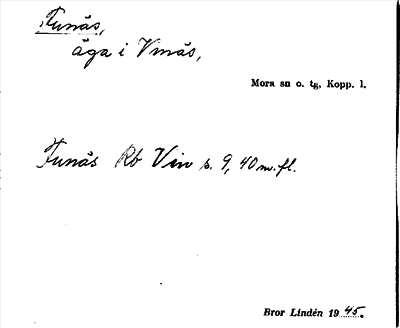 Funås,
äga i Vinäs,
Mora sn o. tg. Kopp. l.
Funås Rb Vin s. 9, 40 m. fl.
Bror Lindén 1945.